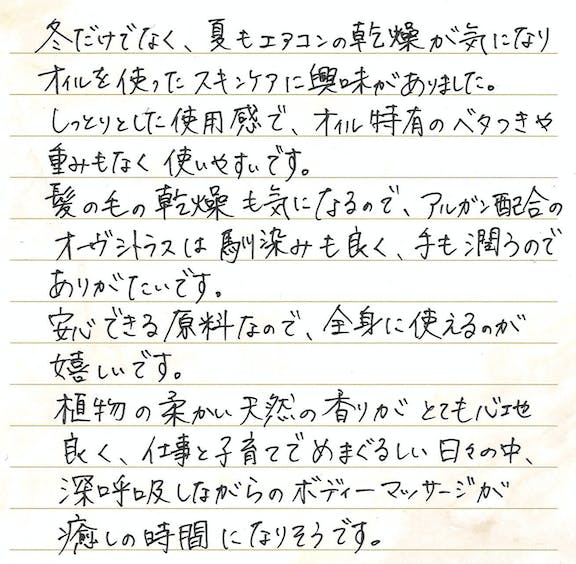 冬だけでなく、夏もエアコンの乾燥が気になり
オイルを使ったスキンケアに興味がありました。
しっとりとした使用感で、オイル特有のベタつきや
重みもなく使いやすいです。
髪の毛の乾燥も気になるので、アルガン配合の
オーヴシトラスは馴染みも良く、手も潤うので
ありがたいです。
安心できる原料なので、全身に使えるのが
嬉しいです。
植物の柔かい天然の香りがとても心地
良く、仕事と子育てでめまぐるしい日々の中、
深呼吸しながらのボディーマッサージが
癒しの時間になりそうです。